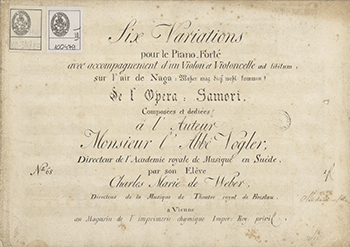 Six Variations
pour le Piano-Forté
avec accompagnement d'un Violon et Violoncelle ad libitum,
sur l'air de Naga: Woher mag dieß wohl kommen?
De l'Opera: Samori.
Composées et dediées
à l'Auteur
Monsieur l'Abbé Vogler,
Directeur de l'Academie royale de Musique en Suède,
par son Elève
Charles Marie de Weber,
Directeur de la Musique de Theatre royal de Breslau.
à Vienne
au Magasin de l'imprimerie chymique Imper. Roy. privil.